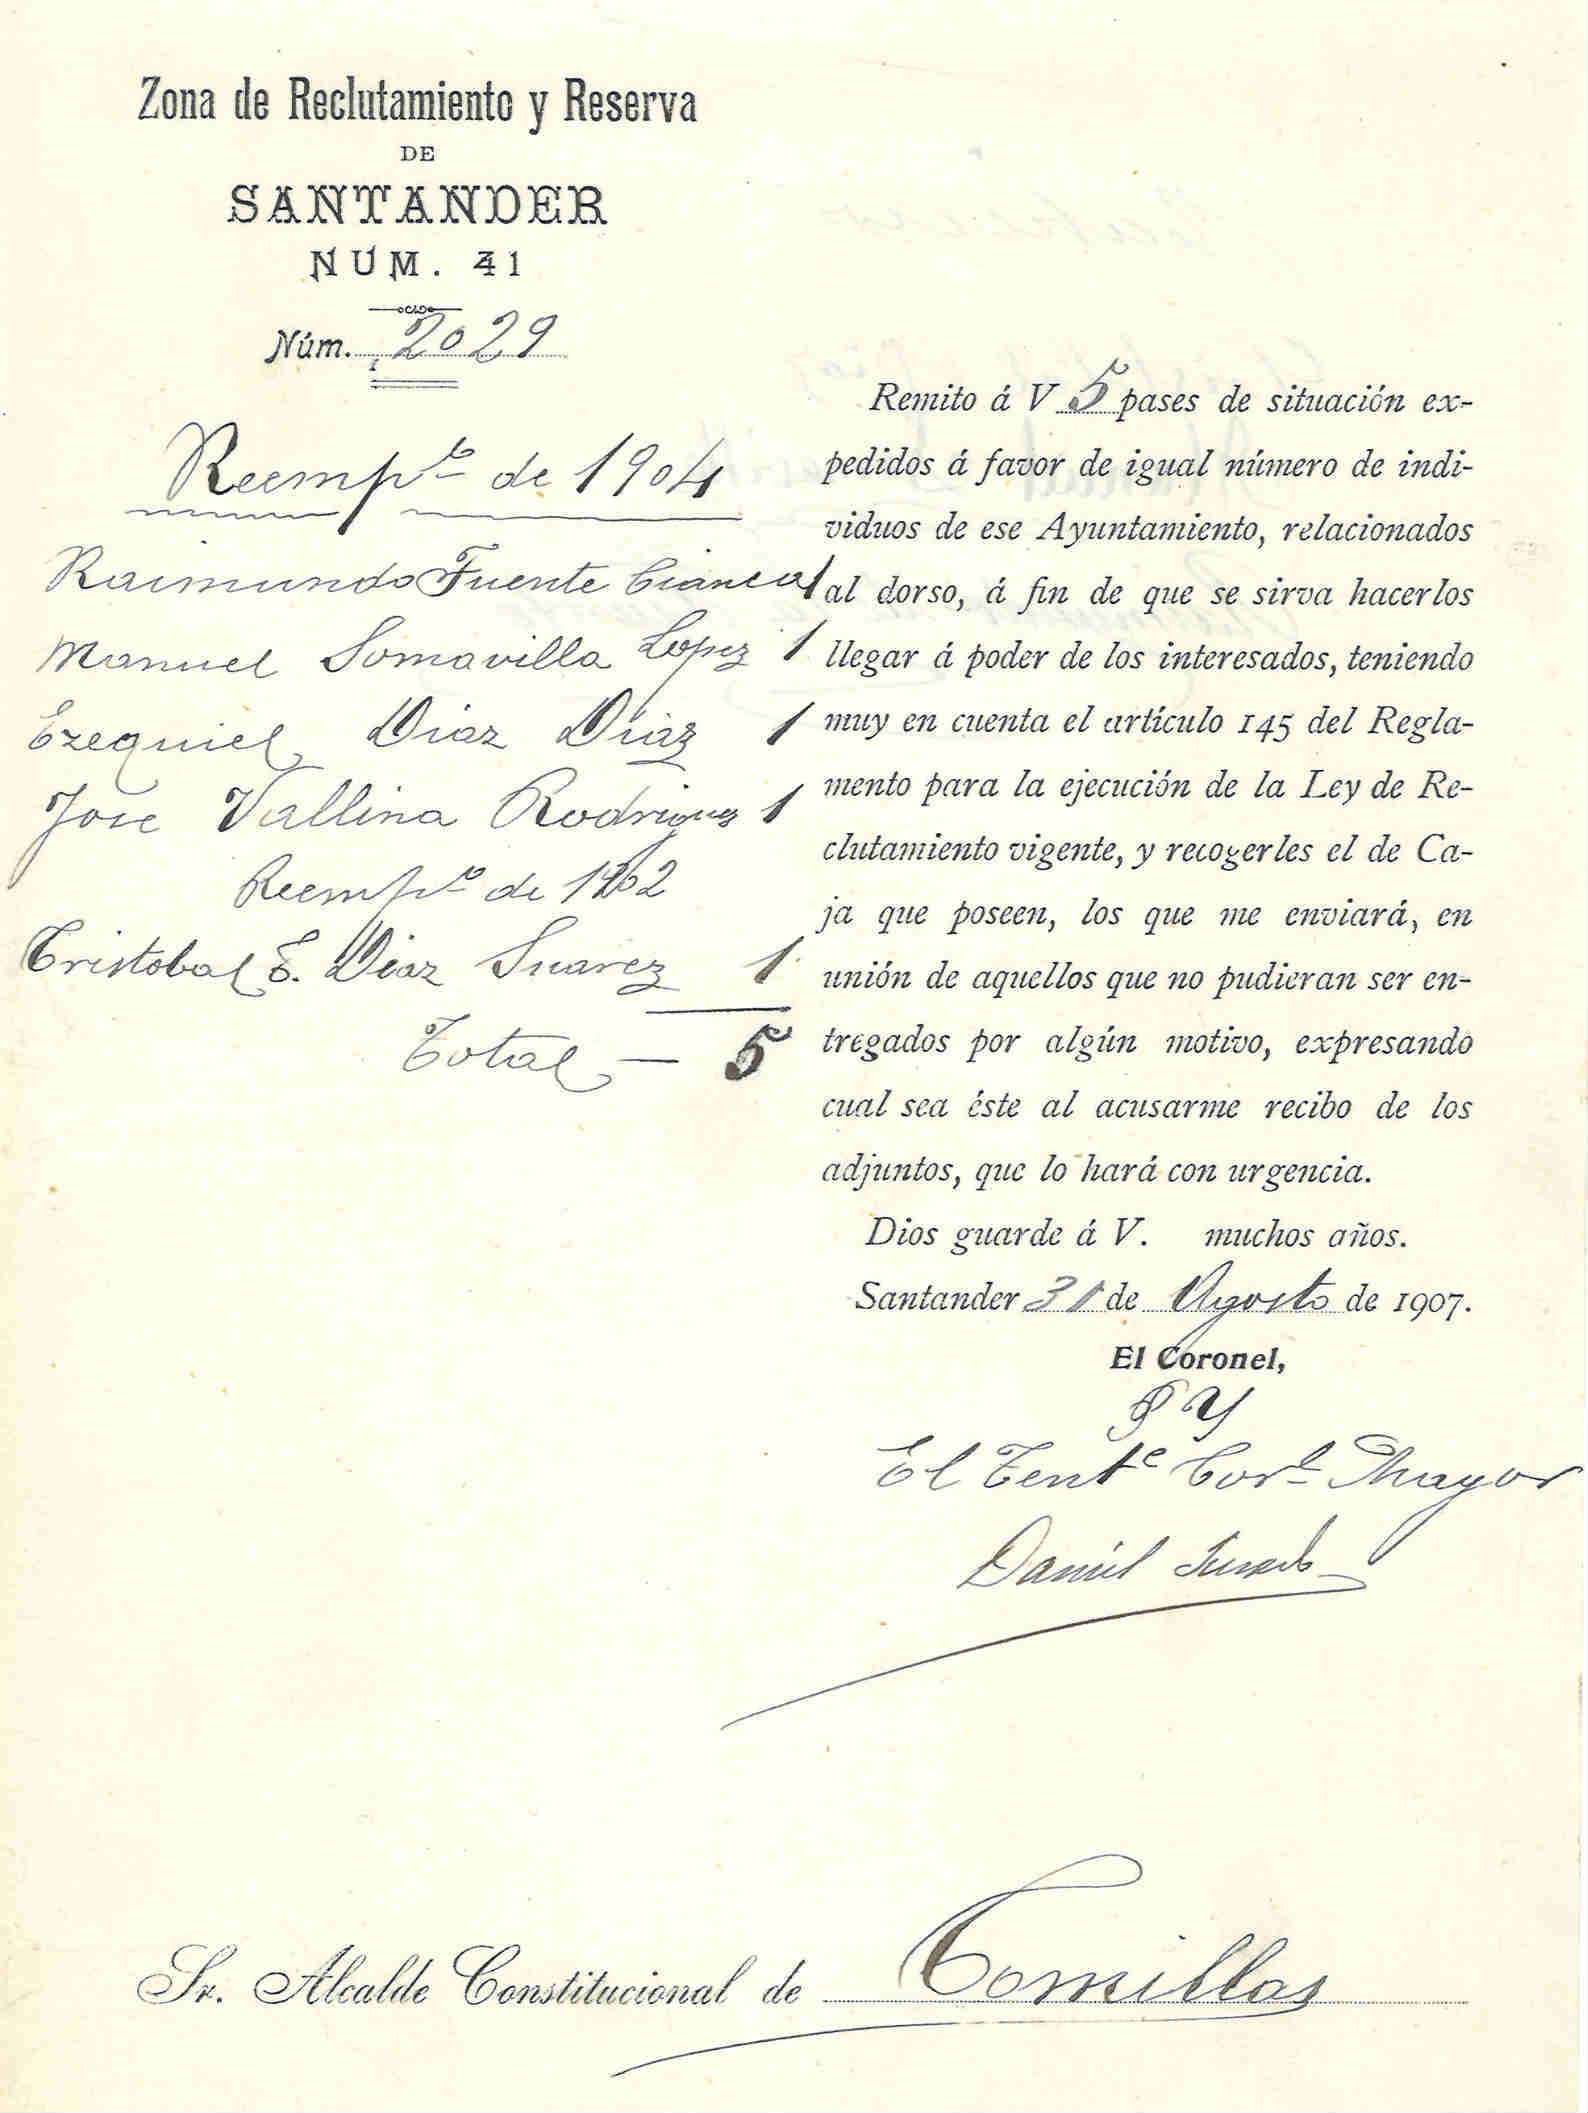 Zona de Reclutamiento y Reserva
DE
SANTANDER
NUM. 41
Núm. 2029
Reempto de 1904
Raimundo Fuente Cianca 1
Manuel Somavilla Lopez 1
Ezequiel Diaz Diaz 1
Jose Vallina Rodriguez 1
Reempto de 1902
Cristobal E. Diaz Suarez 1
Total — 5
Remito á V 5 pases de situación ex-
pedidos á favor de igual número de indi-
viduos de ese Ayuntamiento, relacionados
al dorso, á fin de que se sirva hacerlos
llegar á poder de los interesados, teniendo
muy en cuenta el artículo 145 del Regla-
mento para la ejecución de la Ley de Re-
clutamiento vigente, y recogerles el de Ca-
ja que poseen, los que me enviará, en
unión de aquellos que no pudieran ser en-
tregados por algún motivo, expresando
cual sea éste al acusarme recibo de los
adjuntos, que lo hará con urgencia.
Dios guarde á V. muchos años.
Santander 31 de Agosto de 1907.
El Coronel,
El Tente Corl Mayor
Daniel Jurado
Sr. Alcalde Constitucional de Comillas